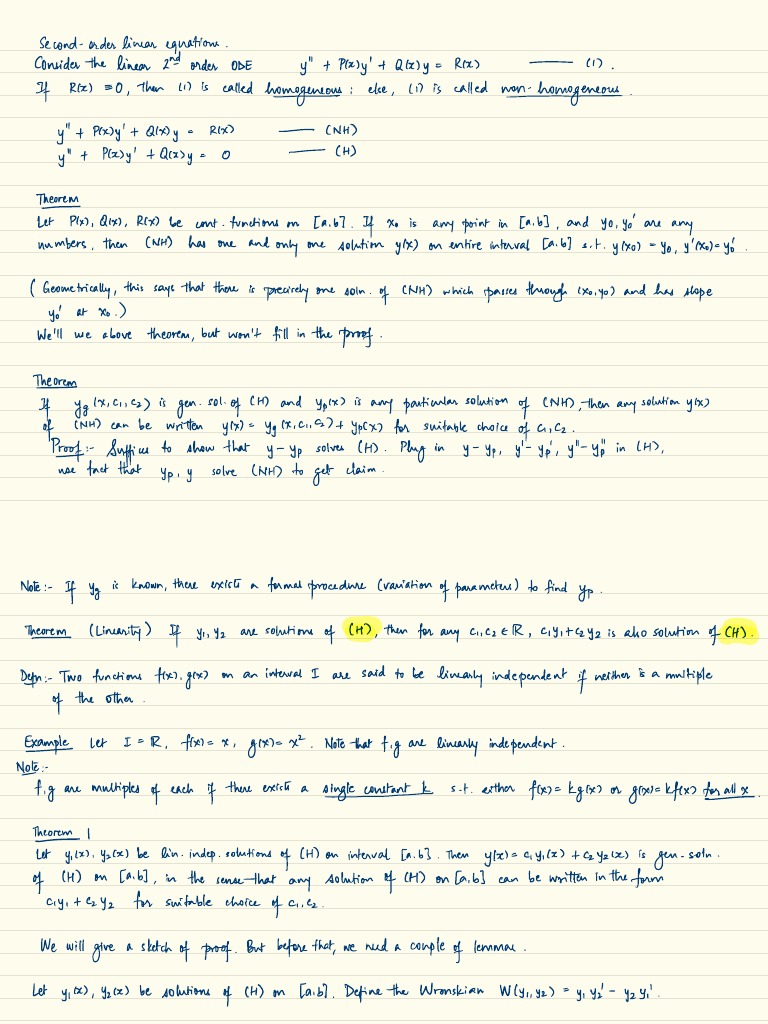 Second-order linear equations.
Consider the linear 2nd order ODE y" + P(x)y' + Q(x)y = R(x) —— (1).
If R(x) ≡ 0, then (1) is called homogeneous; else, (1) is called non-homogeneous.
y" + P(x)y' + Q(x)y = R(x) —— (NH)
y" + P(x)y' + Q(x)y = 0 —— (H)
Theorem
Let P(x), Q(x), R(x) be cont. functions on [a,b]. If x₀ is any point in [a,b], and y₀, y₀' are any
numbers, then (NH) has one and only one solution y(x) on entire interval [a,b] s.t. y(x₀) = y₀, y'(x₀) = y₀'.
(Geometrically, this says that there is precisely one soln. of (NH) which passes through (x₀,y₀) and has slope
y₀' at x₀.)
We'll use above theorem, but won't fill in the proof.
Theorem
If y_g(x,c₁,c₂) is gen. sol. of (H) and y_p(x) is any particular solution of (NH), then any solution y(x)
of (NH) can be written y(x) = y_g(x,c₁,c₂) + y_p(x) for suitable choice of c₁,c₂.
Proof:- Suffices to show that y-y_p solves (H). Plug in y-y_p, y'-y_p', y"-y_p" in (H),
use fact that y_p, y solve (NH) to get claim.
Note:- If y_g is known, there exists a formal procedure (variation of parameters) to find y_p.
Theorem (Linearity) If y₁, y₂ are solutions of (H), then for any c₁,c₂ ∈ ℝ, c₁y₁+c₂y₂ is also solution of (H).
Defn:- Two functions f(x), g(x) on an interval I are said to be linearly independent if neither is a multiple
of the other.
Example Let I = ℝ, f(x) = x, g(x) = x². Note that f,g are linearly independent.
Note:-
f,g are multiples of each if there exists a single constant k s.t. either f(x) = kg(x) or g(x) = kf(x) for all x.
Theorem 1
Let y₁(x), y₂(x) be lin. indep. solutions of (H) on interval [a,b]. Then y(x) = c₁y₁(x) + c₂y₂(x) is gen-soln.
of (H) on [a,b], in the sense that any solution of (H) on [a,b] can be written in the form
c₁y₁ + c₂y₂ for suitable choice of c₁,c₂.
We will give a sketch of proof. But before that, we need a couple of lemmas.
Let y₁(x), y₂(x) be solutions of (H) on [a,b]. Define the Wronskian W(y₁,y₂) = y₁y₂' - y₂y₁'.